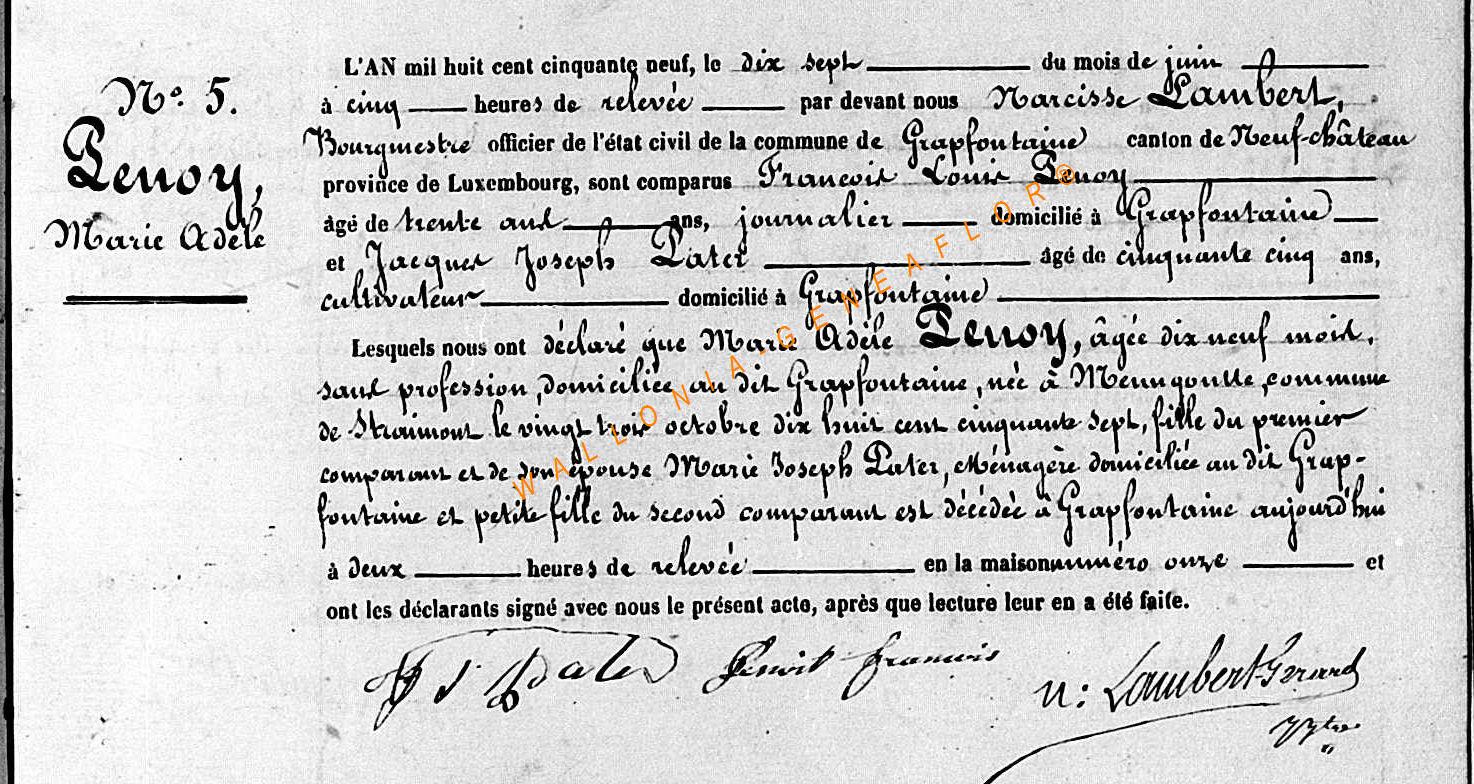 N.° 5.
Penoy,
Marie Adèle
L'AN mil huit cent cinquante neuf, le dix sept du mois de juin
à cinq heures de relevée par devant nous Narcisse Lambert,
Bourgmestre officier de l'état civil de la commune de Grapfontaine canton de Neufchâteau
province de Luxembourg, sont comparus François Louis Penoy
âgé de trente ans ans, journalier domicilié à Grapfontaine
et Jacques Joseph Pater âgé de cinquante cinq ans,
cultivateur domicilié à Grapfontaine
Lesquels nous ont déclaré que Marie Adèle Penoy, âgée dix neuf mois,
sans profession, domiciliée au dit Grapfontaine, née à Menugoutte, commune
de Straimont le vingt trois octobre dix huit cent cinquante sept, fille du premier
comparant et de son épouse Marie Joseph Pater, Ménagère domiciliée au dit Grap-
fontaine et petite fille du second comparant est décédée à Grapfontaine aujourd'hui
à deux heures de relevée en la maison numéro onze et
ont les déclarants signé avec nous le présent acte, après que lecture leur en a été faite.
J J Pater Penoit francois n: Lambert-Gerard
WALLONIA-GENEAFLOR®